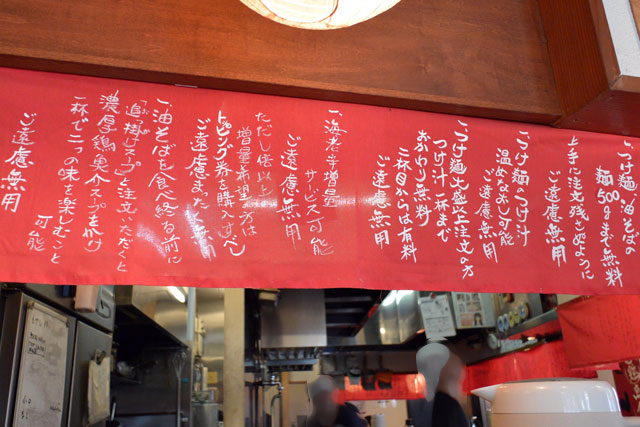 一、つけ麺、油そばの
麺500gまで無料
上手に注文残さぬように
ご遠慮無用
一、つけ麺のつけ汁
温めなおし可能
ご遠慮無用
一、つけ麺大盛以上注文の方
つけ汁一杯まで
おかわり無料
二杯目からは有料
ご遠慮無用
一、海老辛増量
サービス可能
ご遠慮無用
ただし倍以上の
増量希望の方は
トッピング券を購入すべし
ご遠慮まったく無用
一、油そばを食べ終る前に
「追っ掛けスープ」と注文いただくと
濃厚鶏魚介スープをかけ
一杯で二つの味を楽しむこと
可能
ご遠慮無用